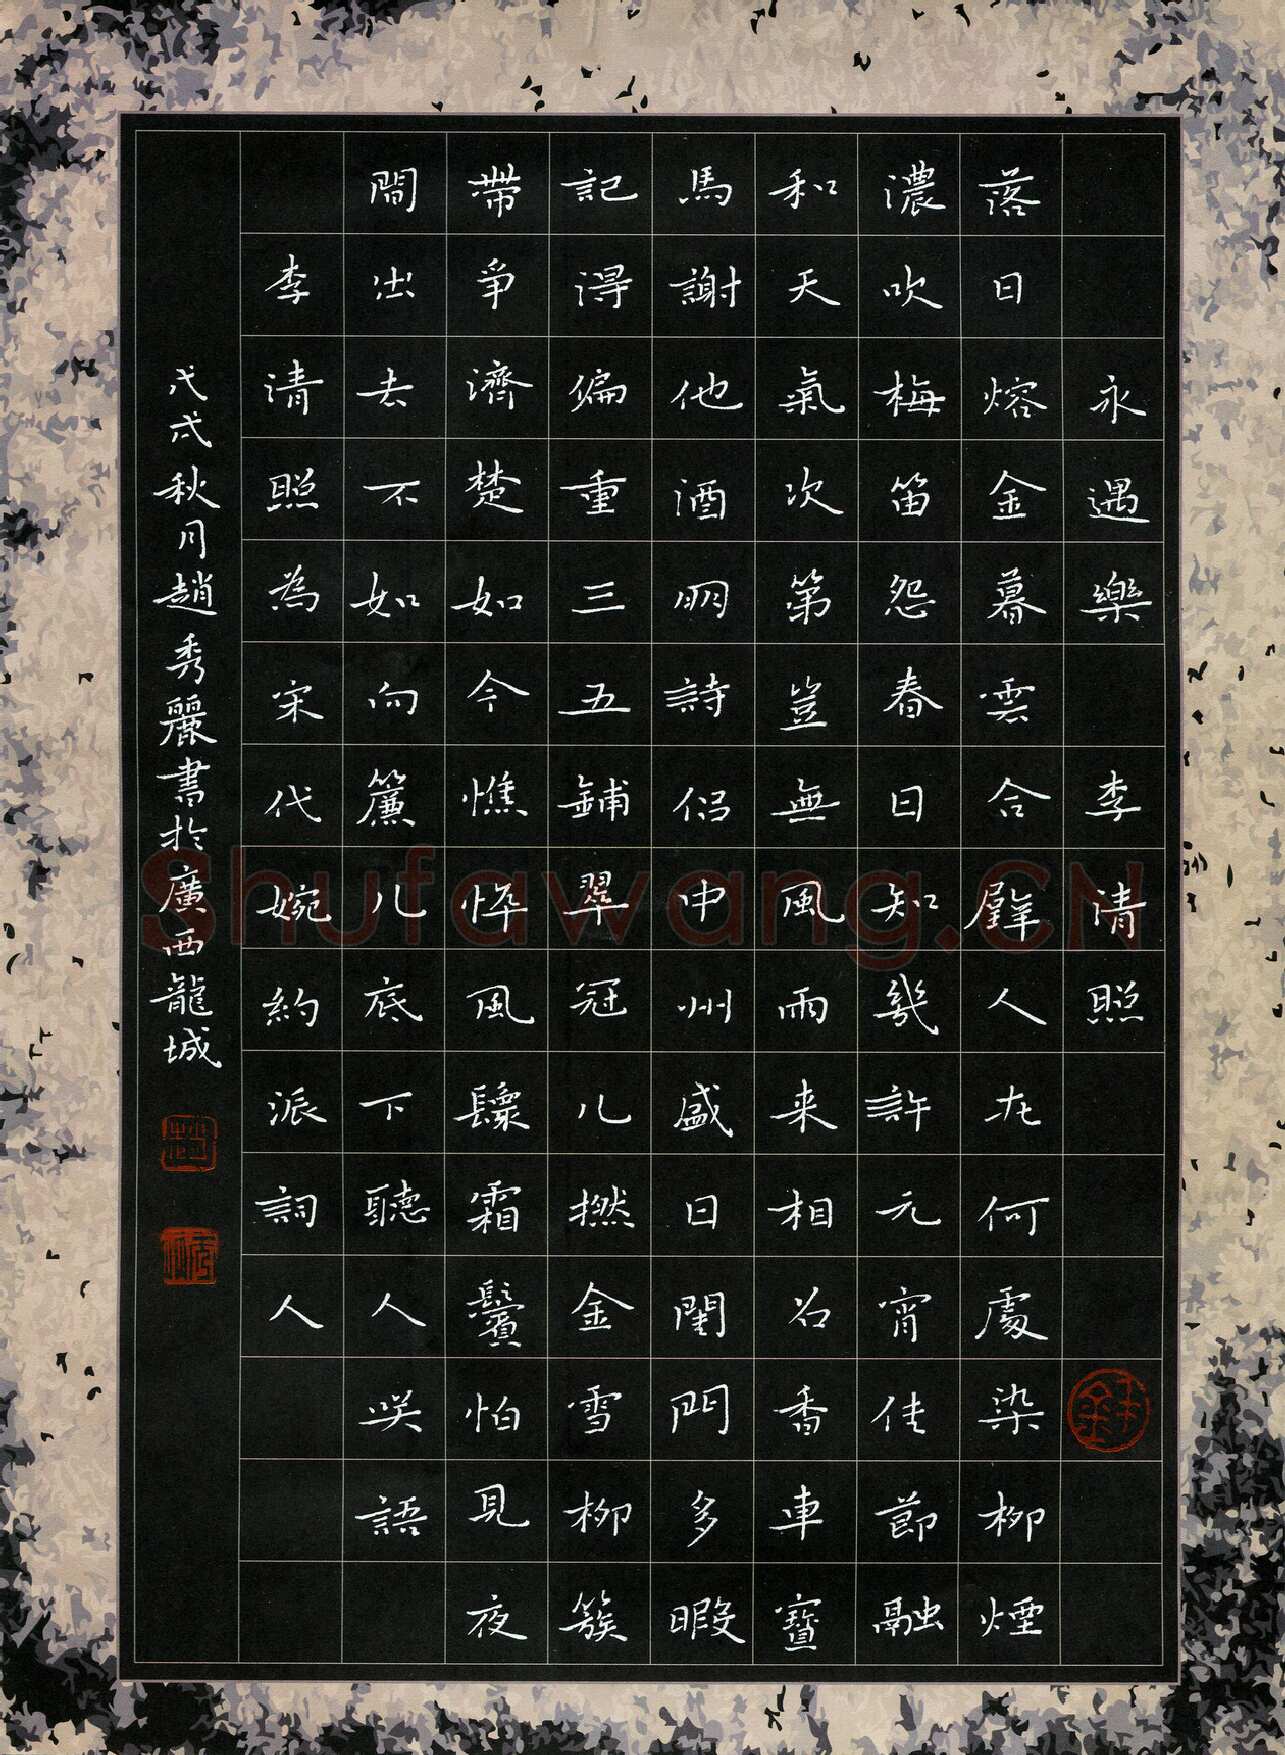 永遇樂 李清照
落日熔金暮雲合璧人在何處染柳煙
濃吹梅笛怨春日知幾許元宵佳節融
和天氣次第豈無風雨来相召香車寶
馬謝他酒朋詩侣中州盛日閨門多暇
記得偏重三五鋪翠冠儿撚金雪柳簇
帶爭濟楚如今憔悴風鬟霜鬢怕見夜
間出去不如向簾儿底下聽人咲語
李清照為宋代婉約派詞人
戊戌秋月趙秀麗書於廣西龍城
Shufawang.CN